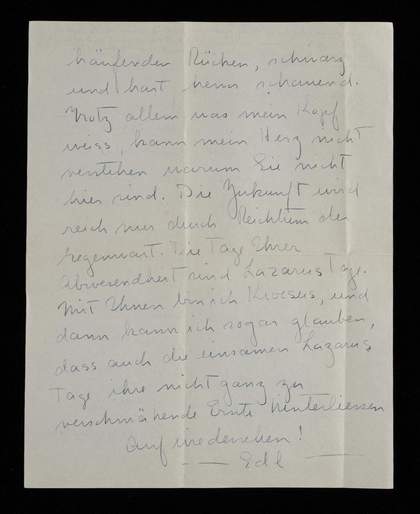 häufenden Rücken, schwarz
und hart herausschauend.
Trotz allem was mein Kopf
weiss, kann mein Herz nicht
verstehen warum Sie nicht
hier sind. Die Zukunft wird
reich nur durch Reichtum der
Gegenwart. Die Tage Ihrer
Abwesendheit sind Lazarus Tage.
Mit Ihnen bin ich Kroesus, und
dann kann ich sogar glauben,
dass auch die einsamen Lazarus
Tage ihre nicht ganz zu
verschmähende Ernte hinterliessen
Auf wiedersehen!
— Edl —